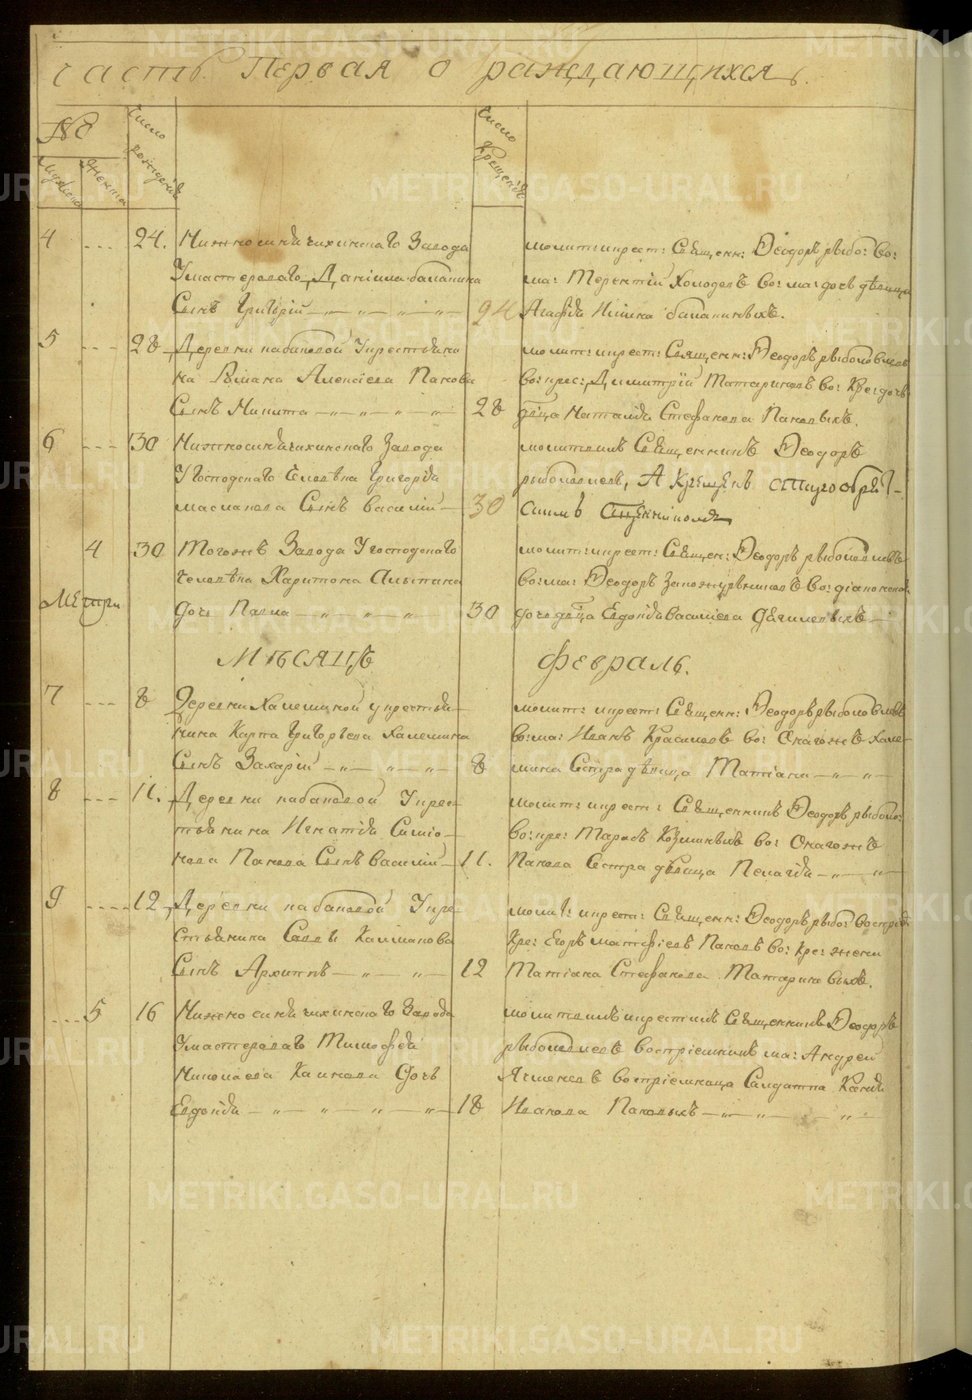 часть Первая о раждающихся
№
Мужеска
Женска
Число рожденiя
Число Крещенiя
4 24. Нижносинячихинскаго Завода
Умастероваго Данiила баланина
Сынъ Григорiй 24
молит: икрест: Священ: Ѳеодоръ рыбо: во:
ма: Терентiй Холодовъ во: ма: дочь дѣвица
Агафiя баланиныхъ.
5 28 Деревни кабаковой Укрестьяни
на Романа Алексiева Панова
Сынъ Никита 28
молит: икрест: Священ: Ѳеодоръ рыболовлевъ
во: крес: Димитрiй Татариновъ во: Кре: дочь
дѣвица Наталiя Стефанова Пановыхъ.
6 30 Нижносинячихинскаго Завода
Угосподскаго Человѣка Григорiя
масланова Сынъ Василiй 30
молитвилъ Священникъ Ѳеодоръ
рыболовлевъ, А Крещенъ
4 30 Тогожъ Завода Угосподскаго
человѣка Харитона
дочь 30
молит: икрест: Священ: Ѳеодоръ рыболовлевъ
во: ма: Ѳеодоръ во: дiаконска
дочь дѣвица Евдокiя Василiева
Мѣсяцъ Февраль.
7 8 Деревни Халеминой укрестья
нина Карпа Григорьева Халемина
Сынъ Захарiй 8
молит: икрест: Священ: Ѳеодоръ рыболовлевъ
во: ма: Иванъ Красиловъ во: Онагожъ Хале
мина Сестра дѣвица Татiана
8 11. Деревни кабаковой Укрес
тьянина Игнатiя Симiо
нова Панова Сынъ Василiй 11.
молит: икрест: Священникъ Ѳеодоръ рыболо:
во: кре: Тарасъ во: Онагожъ
Панова Сестра дѣвица Пелагiя
9 12 Деревни кабаковой Укре
стьянина Саввы Калманова
Сынъ Архиппъ 12
молит: икрест: Священ: Ѳеодоръ рыбо: вострiя
Кре: Егоръ матфiевъ Пановъ во: Кре: жена
Татiана Стефанова Татариновыхъ.
5 16 Нижносинячихинскаго Завода
Умастероваго Тимофѣя
Николаева Канкова Дочь
Евдокiя 18
молитвилъ икрестилъ Священникъ Ѳеодоръ
рыболовлевъ вострiемникъ ма: Андрей
Ячменевъ вострiемница Салдатка
Иванова Пановыхъ